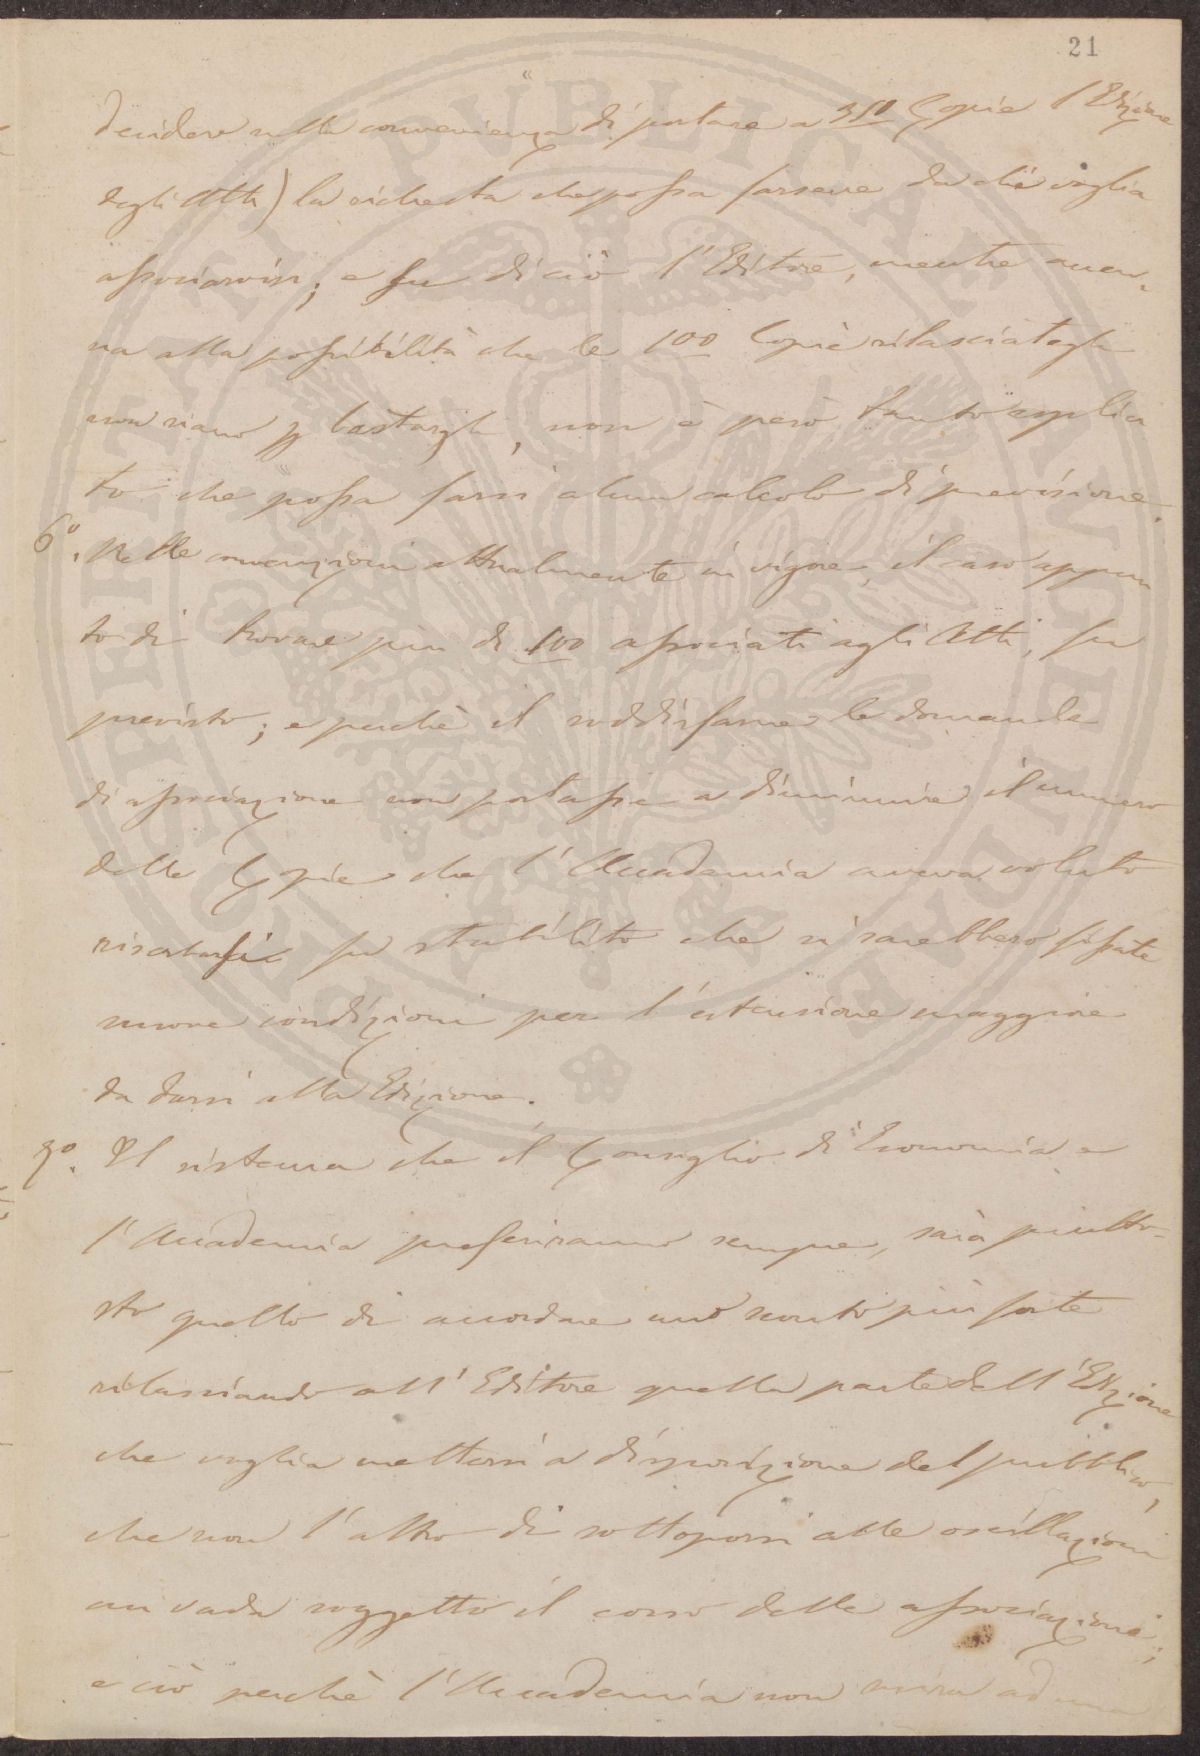 21
decidere sulla convenienza di portare a 350 Copie l'Edizione
degli Atti) la richiesta che possa farsene da chi voglia
associarvisi; e su di ciò l'Editore, mentre accen-
na alla possibilità che le 100 Copie rilasciategli
non siano p bastargli, non è però tanto esplici
to che possa farsi alcun calcolo di previsione.
6º. Nelle convenzioni attualmente in vigore, il caso appun
to di trovare più di 100 associati agli Atti, fu
previsto; e perchè il soddisfarne le domande
di associazione non portasse a diminuire il numero
delle Copie che l'Accademia aveva voluto
riserbarsi fu stabilito che si sarebbero fissate
nuove condizioni per l'estensione maggiore
da darsi alla Edizione.
7º. Il sistema che il Consiglio di Economia e
l'Accademia preferiranno sempre, sarà piutto-
sto quello di accordare uno sconto più forte
rilasciando all'Editore quella parte dell'Edizione
che voglia mettersi a disposizione del pubblico,
che non l'altro di sottoporsi alle oscillazioni
cui vada soggetto il corso delle associazioni;
e ciò perchè l'Accademia non mira ad una
PROSPERITATI PVBLICAE AVGENDAE